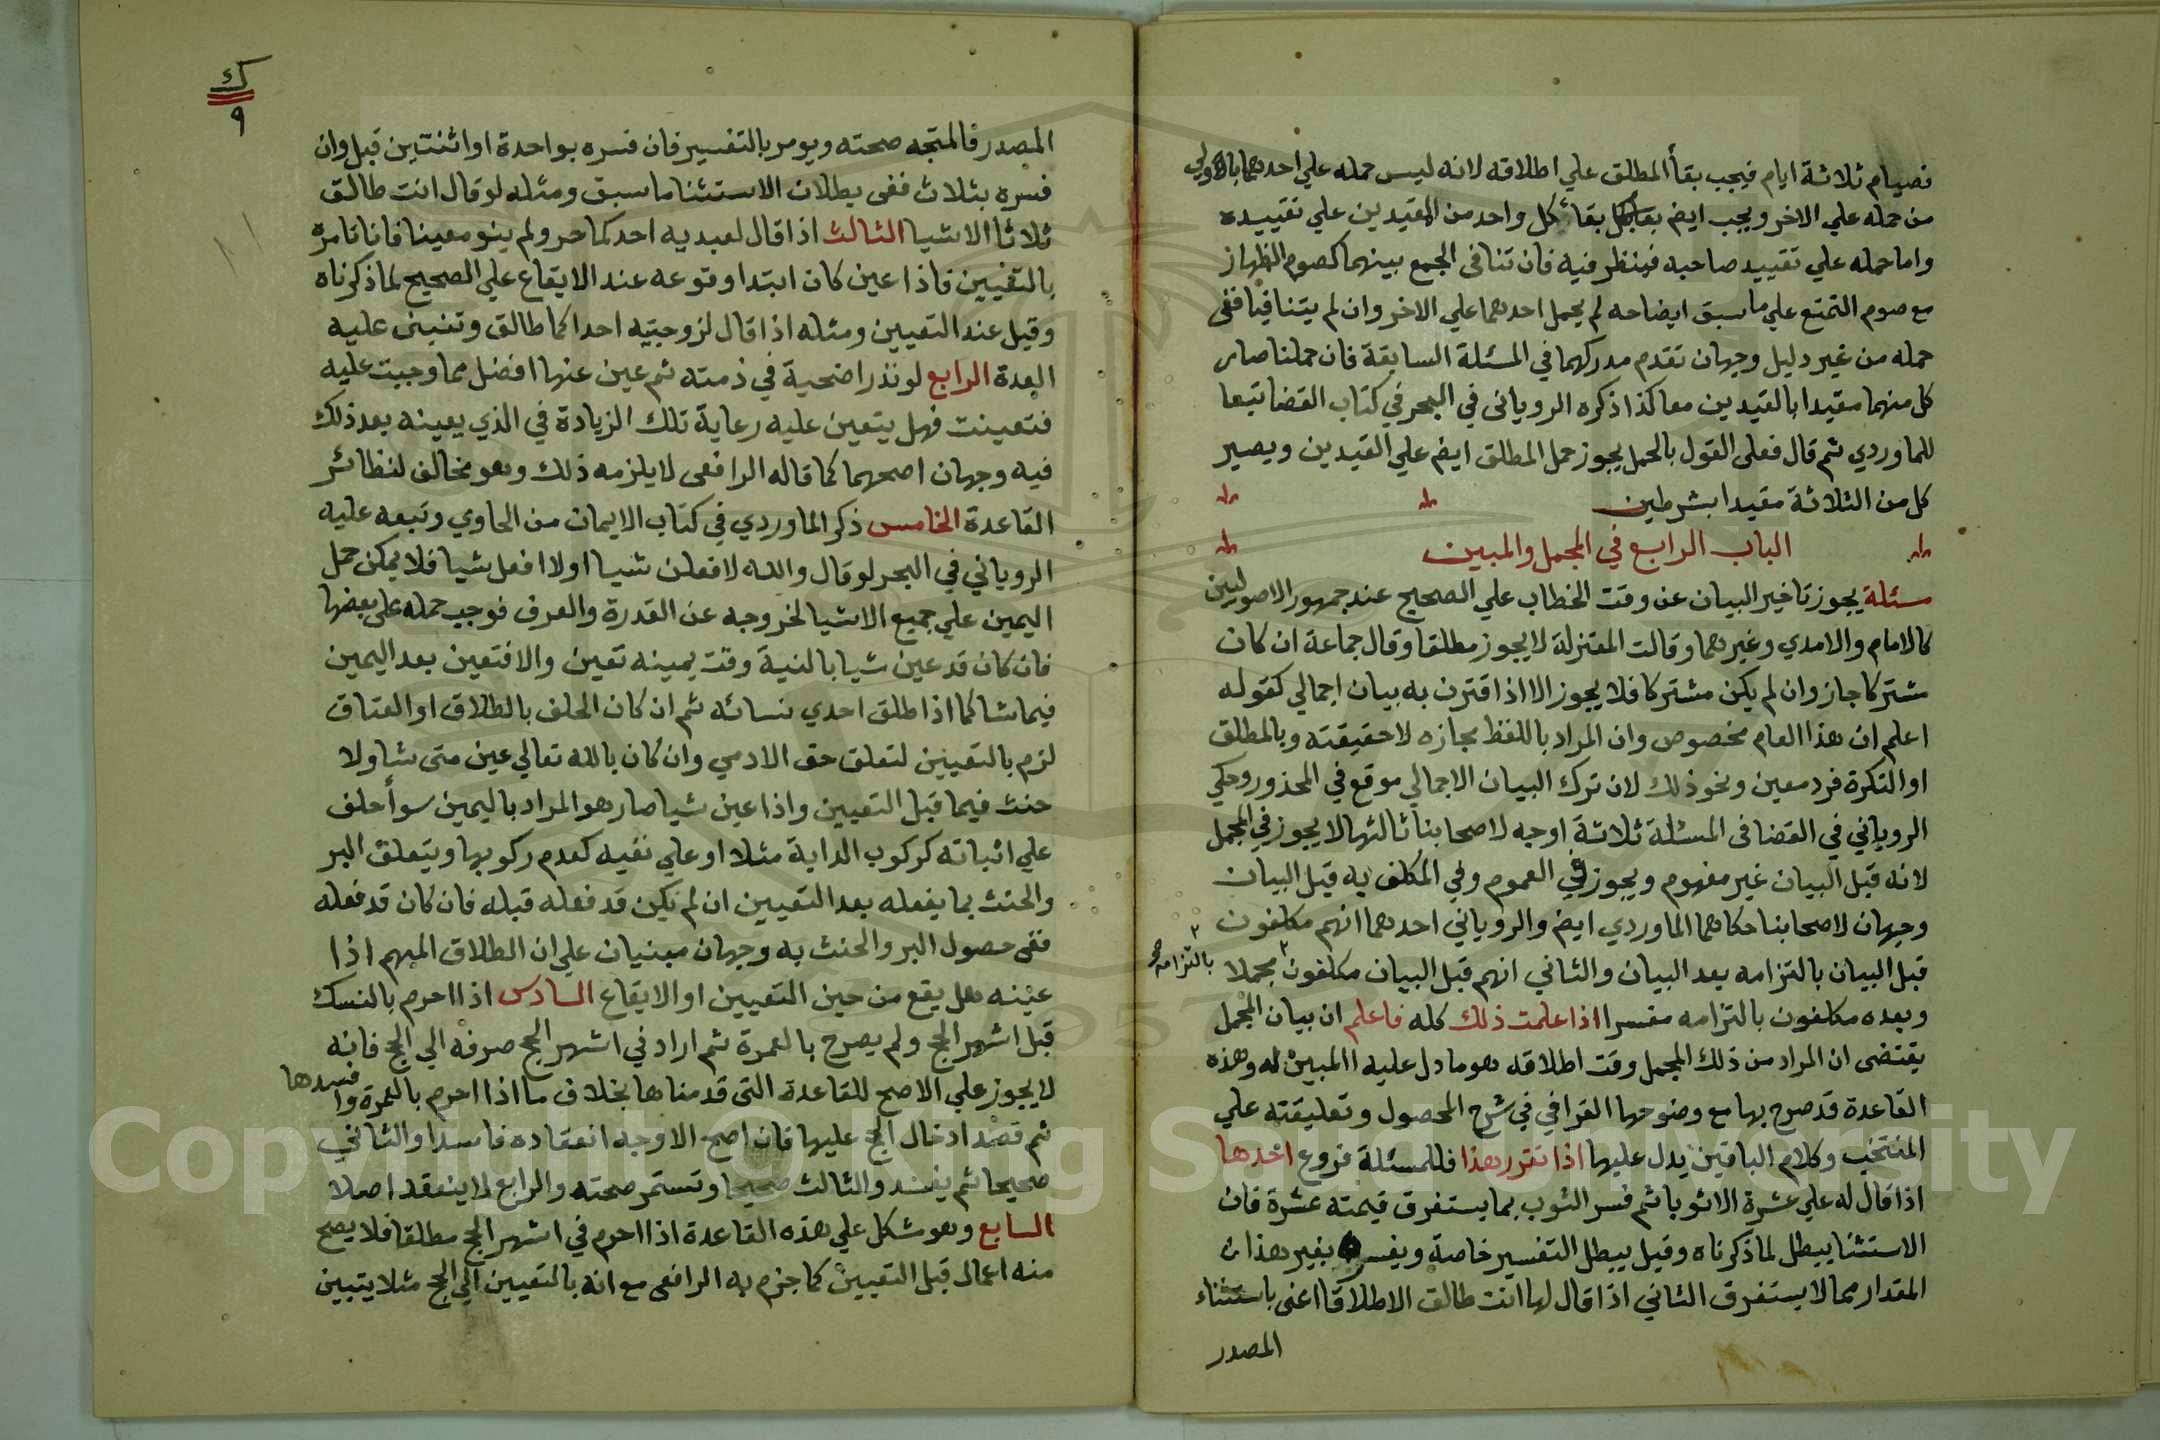 فصيام ثلاثة ايام فيجب بقأ المطلق علي اطلاقه لانه ليس حمله علي احدهما باولي
من حمله علي الاخر ويجب ايض بقأ كل واحد من المقيدين علي تقييده
واما حمله علي تقييد صاحبه فينظر فيه فان تنافى الجمع بينهما كصوم الظهار
مع صوم التمتع علي ما سبق ايضاحه لم يحمل احدهما علي الاخر وان لم يتنافيا ففى
حمله من غير دليل وجهان تقدم مدركهما في المسئلة السابقة فان حملنا صار
كل منهما مقيدا بالقيدين معا كذا ذكره الرويانى في البحر في كتاب القضا تبعا
للماوردي ثم قال فعلى القول بالحمل يجوز حمل المطلق ايض علي القيدين ويصير
كل من الثلاثة مقيدا بشرطين
الباب الرابع في المجمل والمبين
مسئلة يجوز تاخير البيان عن وقت الخطاب علي الصحيح عند جمهور الاصوليين
كالامام والامدي وغيرهما وقالت المعتزلة لا يجوز مطلقا وقال جماعة ان كان
مشتركا جاز وان لم يكن مشتركا فلا يجوز الا اذا اقترن به بيان اجمالي كقوله
اعلم ان هذا العام مخصوص وان المراد باللفظ مجازه لا حقيقته وبالمطلق
او النكرة فرد معين ونحو ذلك لان ترك البيان الاجمالي موقع في المحذور وحكي
الروياني في القضا فى المسئلة ثلاثة اوجه لاصحابنا ثالثها لا يجوز في المجمل
لانه قبل البيان غير مفهوم ويجوز في العموم وفي المكلف به قبل البيان
وجهان لاصحابنا حكاهما الماوردي ايض والروياني احدهما انهم مكلفون
قبل البيان بالتزامه بعد البيان والثاني انهم قبل البيان مكلفون مجملا
بالتزامه
وبعده مكلفون بالتزامه مفسرا اذا علمت ذلك كله فاعلم ان بيان المجمل
يقتضى ان المراد من ذلك المجمل وقت اطلاقه هو ما دل عليه المبين له وهذه
القاعدة قد صرح بها مع وضوحها القرافي في شرح المحصول وتعليقته علي
المنتخب وكلام الباقين يدل عليها اذا تقرر هذا فللمسئلة فروع احدها
اذا قال له علي عشرة الا ثوبا ثم فسر الثوب بما يستغرق قيمته عشرة فان
الاستثنا يبطل لما ذكرناه وقيل يبطل التفسير خاصة ويفسر بغير هذا
المقدار مما لا يستغرق الثاني اذا قال لها انت طالق الا طلاقا اعنى باستثناء
المصدر
ك
٩
المصدر فالمتجه صحته ويومر بالتفسير فان فسره بواحدة او اثنتين قبل وان
فسره بثلاث ففى بطلان الاستثنا ما سبق ومثله لو قال انت طالق
ثلاثا الا شيا الثالث اذا قال لعبديه احدكما حر ولم ينو معينا فانا نامره
بالتعيين فاذا عين كان ابتدا وقوعه عند الايقاع علي الصحيح لما ذكرناه
وقيل عند التعيين ومثله اذا قال لزوجتيه احداكما طالق وتنبنى عليه
العدة الرابع لو نذر اضحية في ذمته ثم عين عنها افضل مما وجبت عليه
فتعينت فهل يتعين عليه رعاية تلك الزيادة في الذي يعينه بعد ذلك
فيه وجهان اصحهما كما قاله الرافعى لا يلزمه ذلك وهو مخالف لنظائر
القاعدة الخامس ذكر الماوردي في كتاب الايمان من الحاوي وتبعه عليه
الروياني في البحر لو قال والله لافعلن شيا او لا افعل شيا فلا يمكن حمل
اليمين علي جميع الاشيا لخروجه عن القدرة والعرف فوجب حمله علي بعضها
فان كان قد عين شيا بالنية وقت يمينه تعين والا فتعين بعد اليمين
فيما شا كما اذا طلق احدي نسائه ثم ان كان الحلف بالطلاق او العتاق
لزم بالتعيين لتعلق حق الادمي وان كان بالله تعالي عين متى شا ولا
حنث فيما قبل التعيين واذا عين شيا صار هو المراد باليمين سوأ حلف
علي اثباته كركوب الدابة مثلا او علي نفيه كعدم ركوبها ويتعلق البر
والحنث بما يفعله بعد التعيين ان لم يكن قد فعله قبله فان كان قد فعله
ففى حصول البر والحنث به وجهان مبنيان علي ان الطلاق المبهم اذا
عينه هل يقع من حين التعيين او الايقاع السادس اذا احرم بالنسك
قبل اشهر الحج ولم يصرح بالعمرة ثم اراد في اشهر الحج صرفه الي الحج فانه
لا يجوز علي الاصح للقاعدة التى قدمناها بخلاف ما اذا احرم بالعمرة وافسدها
ثم قصد ادخال الحج عليها فان اصح الاوجه انعقاده فاسدا والثاني
صحيحا ثم يفسد والثالث صحيحا وتستمر صحته والرابع لا ينعقد اصلا
السابع وهو مشكل علي هذه القاعدة اذا احرم في اشهر الحج مطلقا فلا يصح
منه اعمال قبل التعيين كما جزم به الرافعى مع انه بالتعيين الي الحج مثلا يتبين